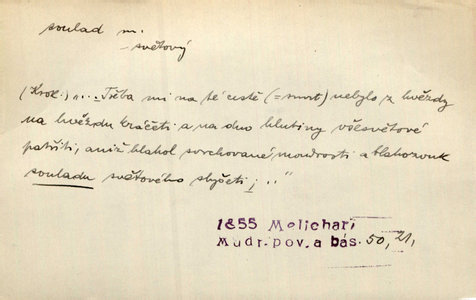 soulad m.
-světový
(Krok:) „... Třeba mi na té cestě (= smrt) nebylo z hvězdy
na hvězdu kráčeti a na dno hlubiny všesvětové
patřiti, aniž hlahol svrchované moudrosti a blahozvuk
souladu světového slyšeti; ..."
1855 Melichari
Mudr. pov. a bás. 50, 21,